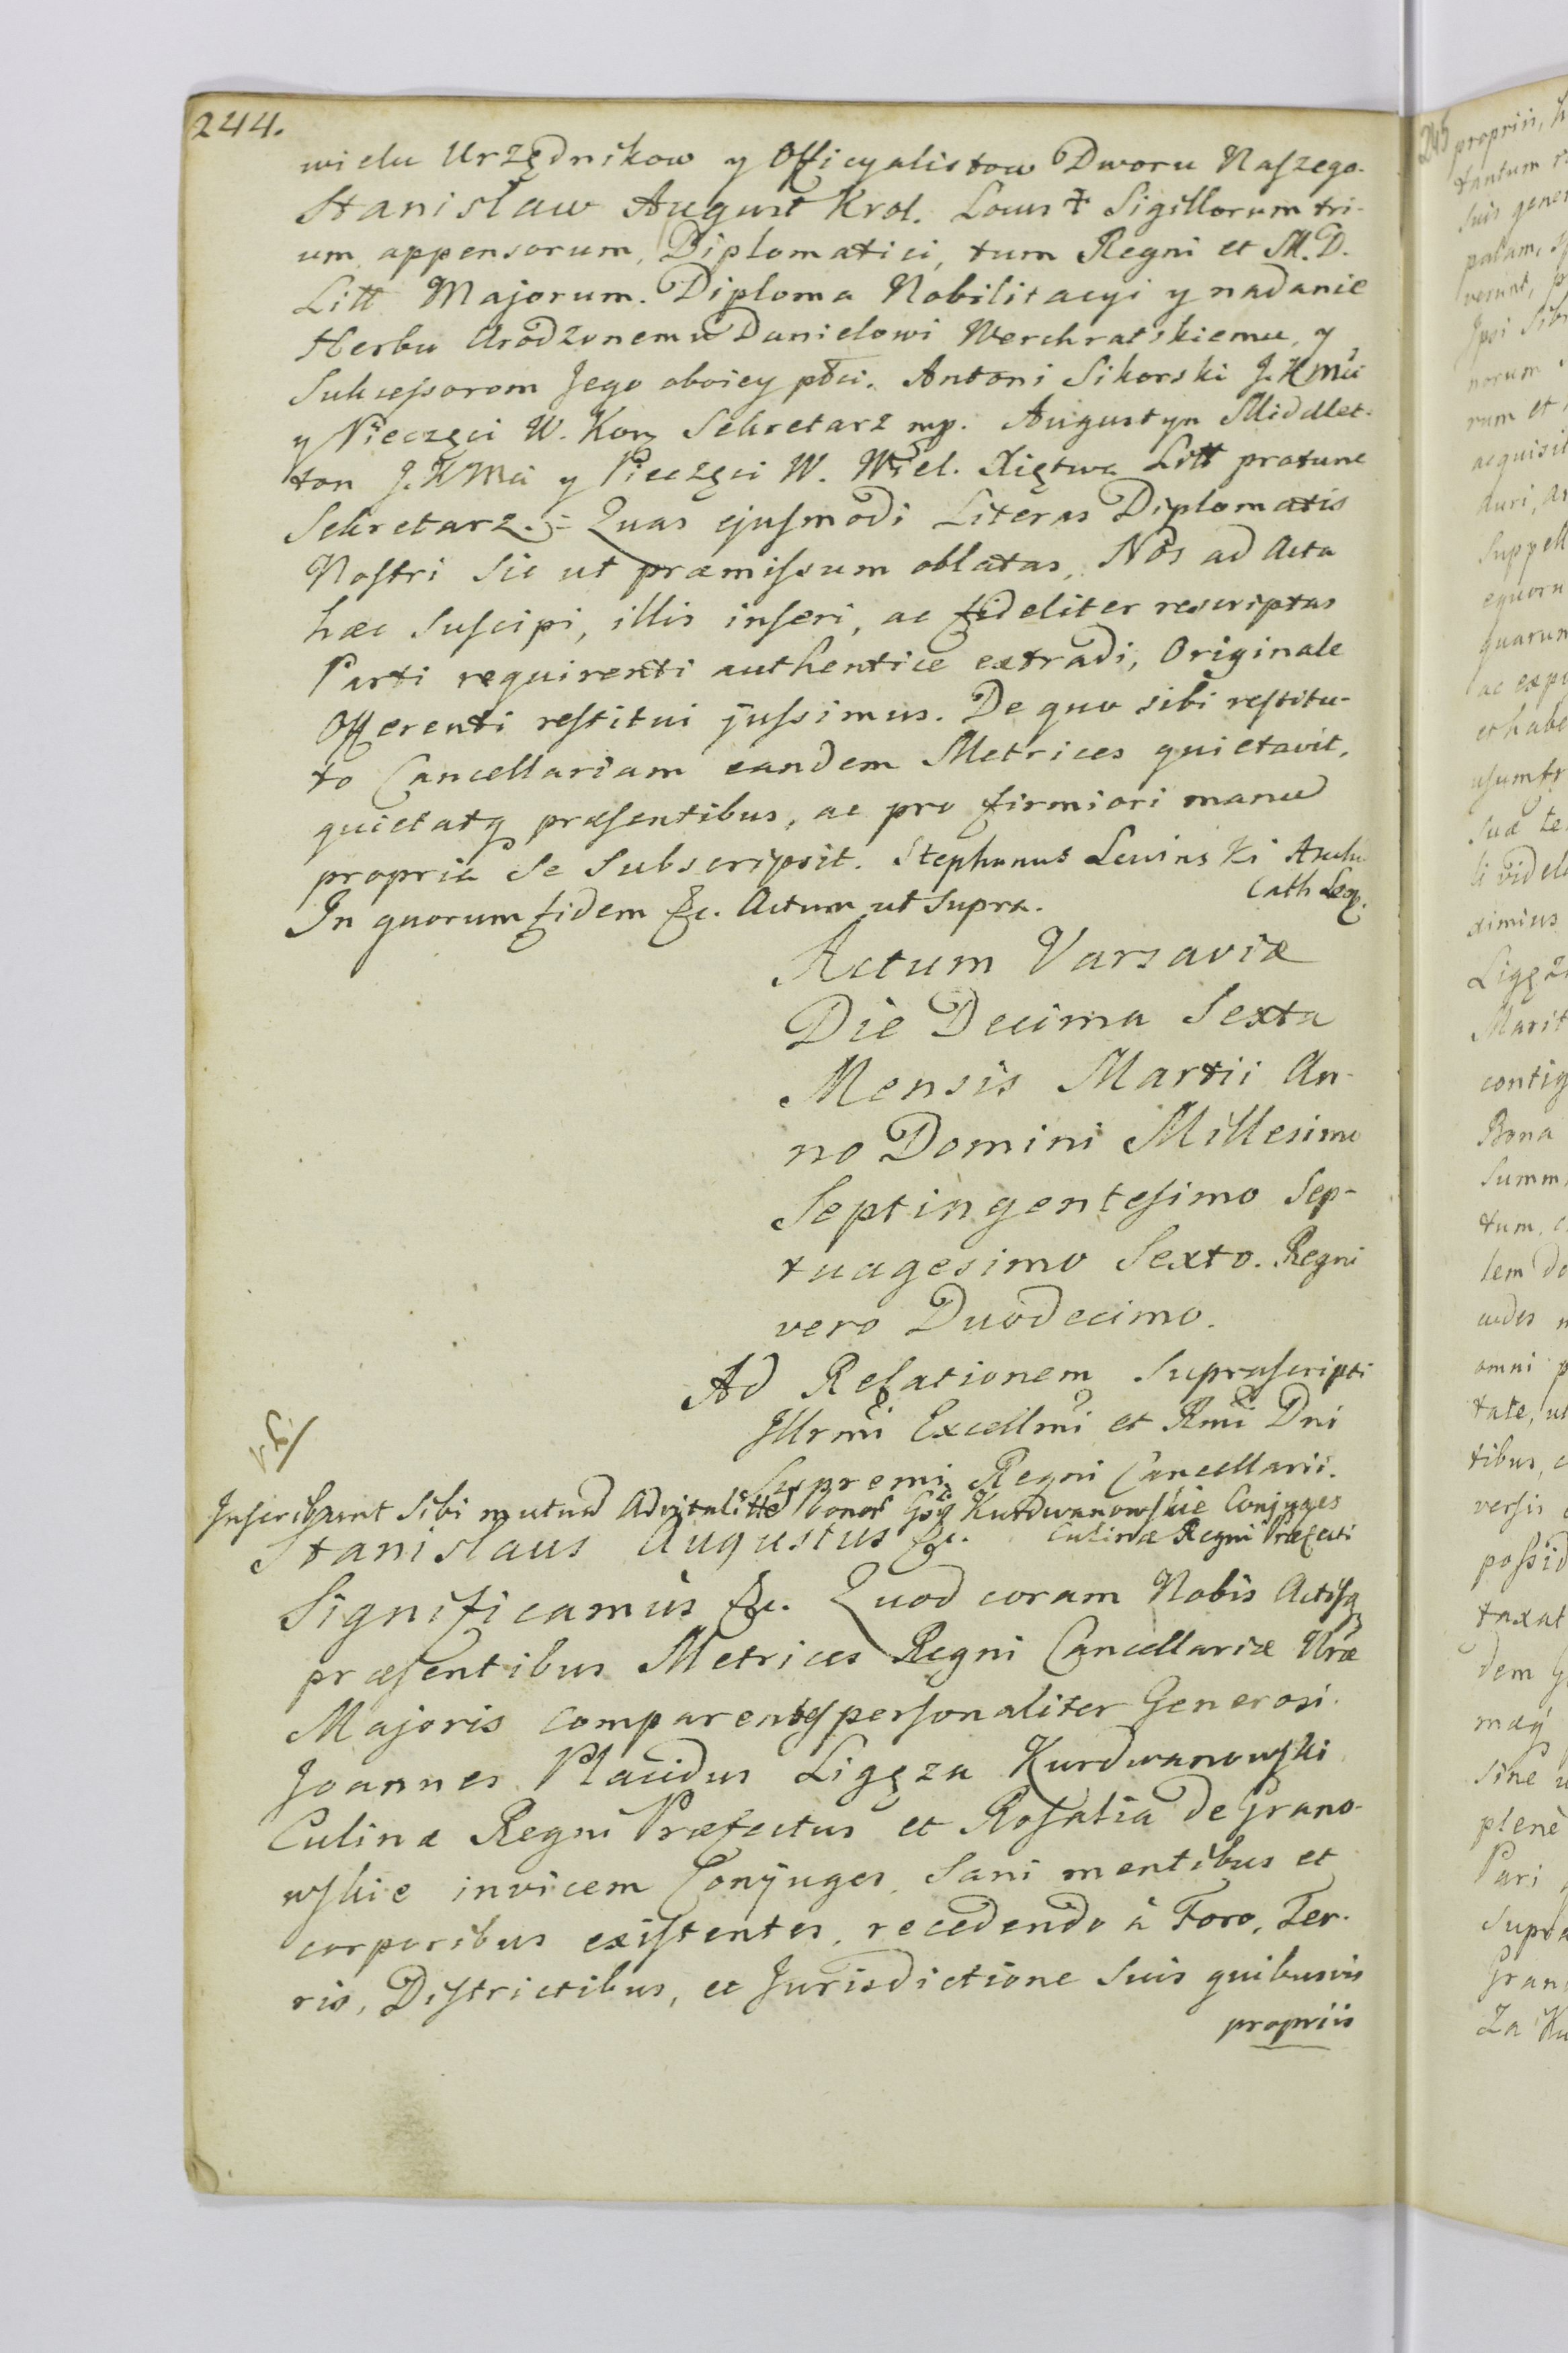 244.
wielu Urzędnikow y Officyalistow Dworu Naszego.
Stanisław August Krol. Locus ✝ Sigillorum tri-
um appensorum, Diplomatici, tum Regni et M. D.
Litt Majorum. Diploma Nobilitacyi y nadanie
Herbu Urodzonemu Danielowi Werchratskiemu, y
Sukcessorom Jego oboiey płci. Antoni Sikorski J. K Mci
y Pieczęci W. Kor Sekretarz mp. Augustyn Middlet-
ton J. K Mci y Pieczęci W. Wiel. Xięstwa Litt protunc
Sekretarz. = Quas ejusmodi Literas Diplomatis
Nostri sic ut præmissum oblatas, Nos ad Acta
hæc suscipi, illis inseri, ac fideliter rescriptas
Parti requirenti authentice extradi, Originale
Offerenti restitui jussimus. De quo sibi restitu-
to Cancellariam eandem Metrices quietavit,
quietatq præsentibus, ac pro firmiori manu
propria se subscripsit. Stephanus Lewinski
Cath
In quorum fidem &c. Actum ut supra.
Actum Varsaviæ
Die Decima Sexta
Mensis Martii An-
no Domini Millesimo
Septingentesimo Sep-
tuagesimo Sexto. Regni
vero Duodecimo.
Ad Relationem Suprascripti
Illrmi Excellmi et Rmi Dni
Supremi Regni Cancellarii.
Inscribunt sibi mutuo Advitalitte bonor Gsi Kurdwanowskie Conjuges
Culinæ Regni Præfecti
Stanislaus Augustus &c.
Significamus &c. Quod coram Nobis Actisq
præsentibus Metrices Regni Cancellariæ Nræ
Majoris comparentes personaliter Generosi
Joannes Placidus Ligęza Kurdwanowski
Culinæ Regni Præfectus et Rosalia de Grano-
wskie invicem Conjuges, sani mentibus et
corporibus existentes, recedendo à Foro, Ter-
ris, Districtibus, et Jurisdictione suis quibusvis
propriis
245
propriis,
tantum
suis gener
palam,
verunt,
Ipsi sibi
norum
rum et
acquisit
auri, ar
suppell
equoru
quarum
ac exp
et habe
usumfr
suæ te
li videl
ximius
Ligęz
Marit
contig
Bona
Summ
tum,
lem do
ædes
omni p
tate, ut
tibus,
versis
possid
taxat
dem G
sine
plenè
Pari
Supra
Gran
za Ku